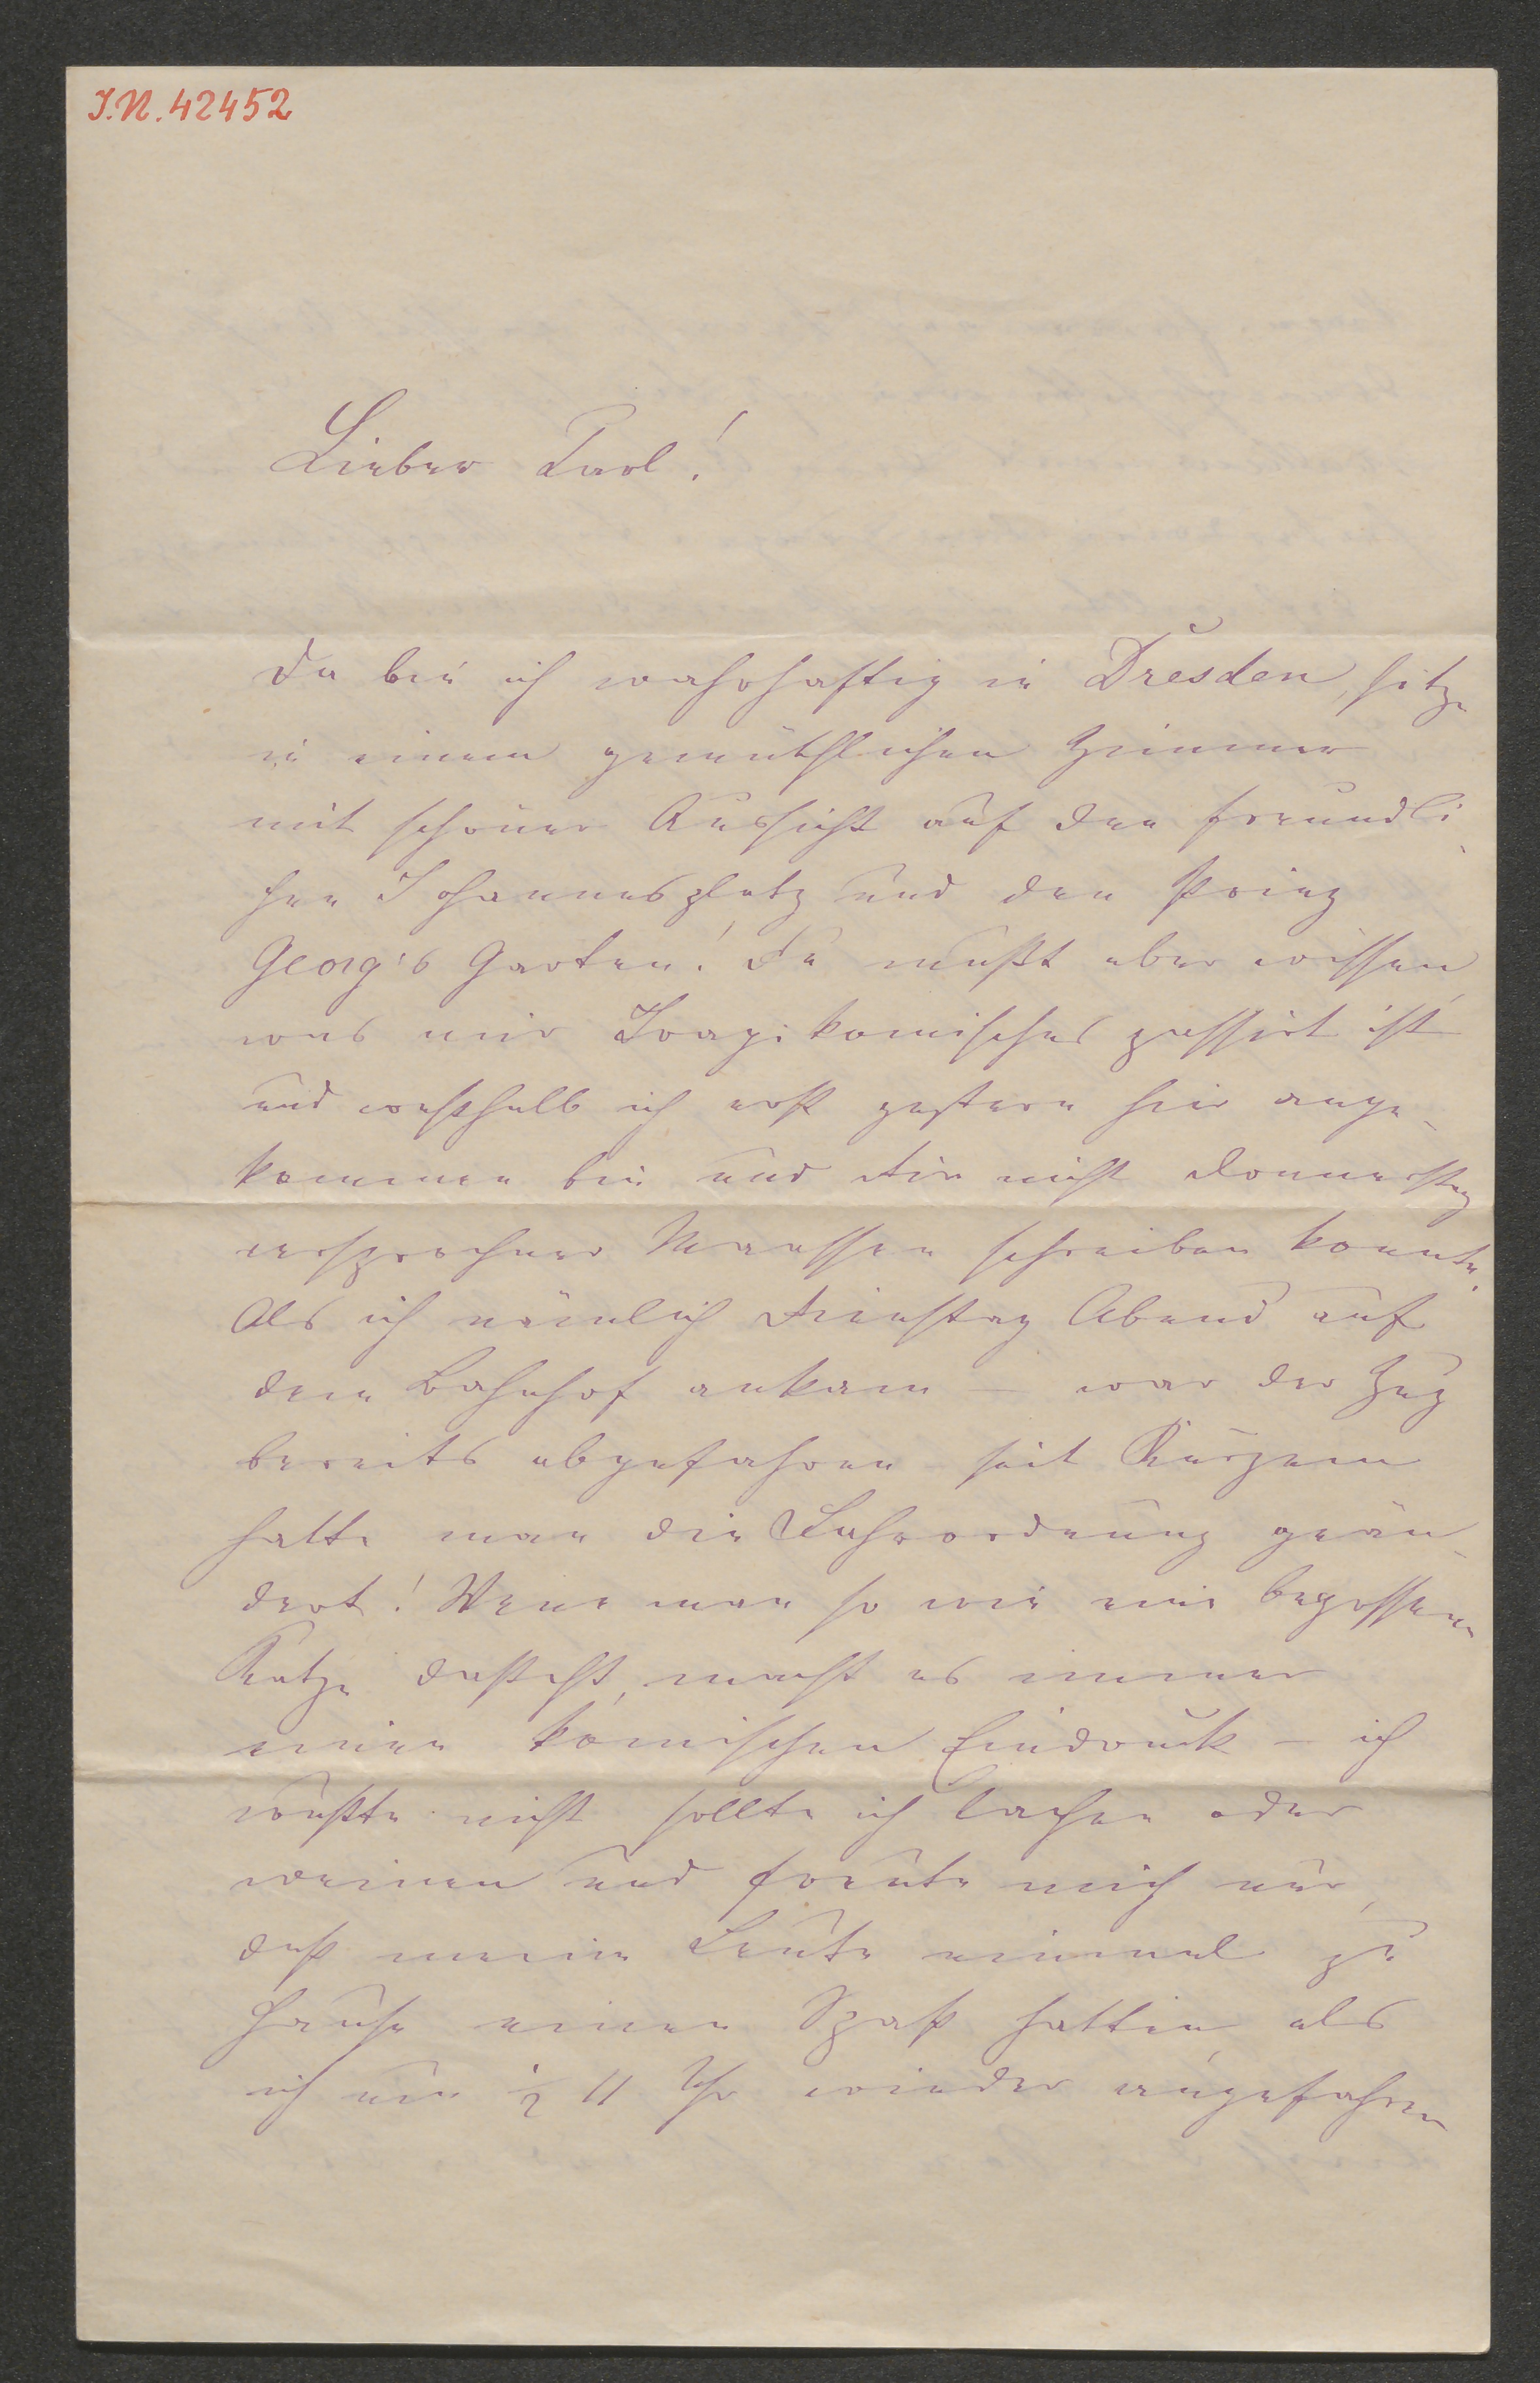 I.N. 42452
Lieber Carl!
Da bin ich wahrhaftig in Dresden, sitze
in einem gemüthlichen Zimmer
mit schöner Aussicht auf den freundli-
chen Johannesplatz und den Prinz
Georg's Garten! Du mußt aber wissen,
was mir Tragikomisches passirt ist
und weßhalb ich erst gestern hier ange-
kommen bin und Dir nicht Donnerstag
versprochner Maassen schreiben konnte.
Als ich nämlich Dienstag Abend auf
dem Bahnhof ankam – war der Zug
bereits abgefahren – seit Kurzem
hatte man die Fahrordnung geän-
dert! Wenn man so wie eine begossene
Katze dasteht, macht es immer
einen komischen Eindruck – ich
wußte nicht sollte ich lachen oder
weinen und freute mich nur,
daß meine Leute einmal zu
Hause einen Spaß hatten, als
ich um ½ 11 Uhr wieder angefahren